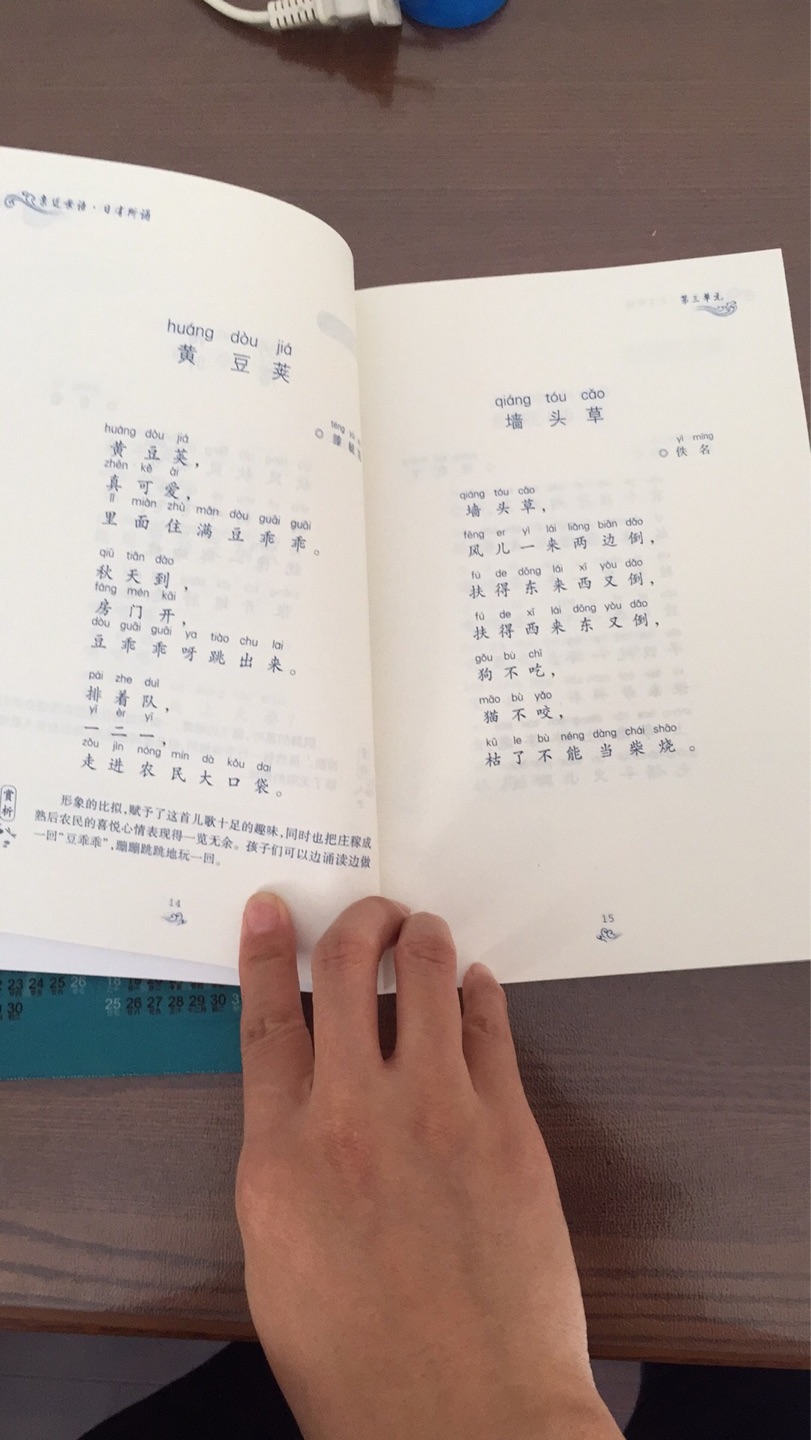 亲近母语·日有所诵
huáng dòu jiá
黄 豆 荚
téng
◎ 滕 毓
huáng dòu jiá
黄 豆 荚，
zhēn kě ài
真 可 爱，
lǐ miàn zhù mǎn dòu guāi guāi
里 面 住 满 豆 乖 乖。
qiū tiān dào
秋 天 到，
fáng mén kāi
房 门 开，
dòu guāi guāi ya tiào chu lai
豆 乖 乖 呀 跳 出 来。
pái zhe duì
排 着 队，
yī èr yī
一 二 一，
zǒu jìn nóng mín dà kǒu dai
走 进 农 民 大 口 袋。
赏析
形象的比拟，赋予了这首儿歌十足的趣味，同时也把庄稼成
熟后农民的喜悦心情表现得一览无余。孩子们可以边诵读边做
一回“豆乖乖”，蹦蹦跳跳地玩一回。
14
第三单元
qiáng tóu cǎo
墙 头 草
yì míng
◎ 佚 名
qiáng tóu cǎo
墙 头 草，
fēng er yì lái liǎng biān dǎo
风 儿 一 来 两 边 倒，
fú de dōng lái xī yòu dǎo
扶 得 东 来 西 又 倒，
fú de xī lái dōng yòu dǎo
扶 得 西 来 东 又 倒，
gǒu bù chī
狗 不 吃，
māo bù yǎo
猫 不 咬，
kū le bù néng dàng chái shāo
枯 了 不 能 当 柴 烧。
15
23 24 25 26
30
25 26 27 28 29 30